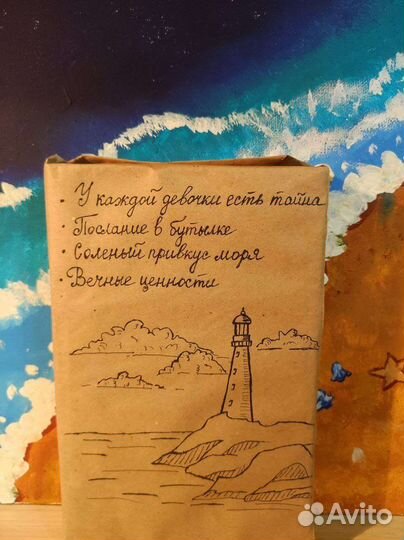 · У каждой девочки есть тайна
· Послание в бутылке
· Соленый привкус моря
· Вечные ценности
Avito